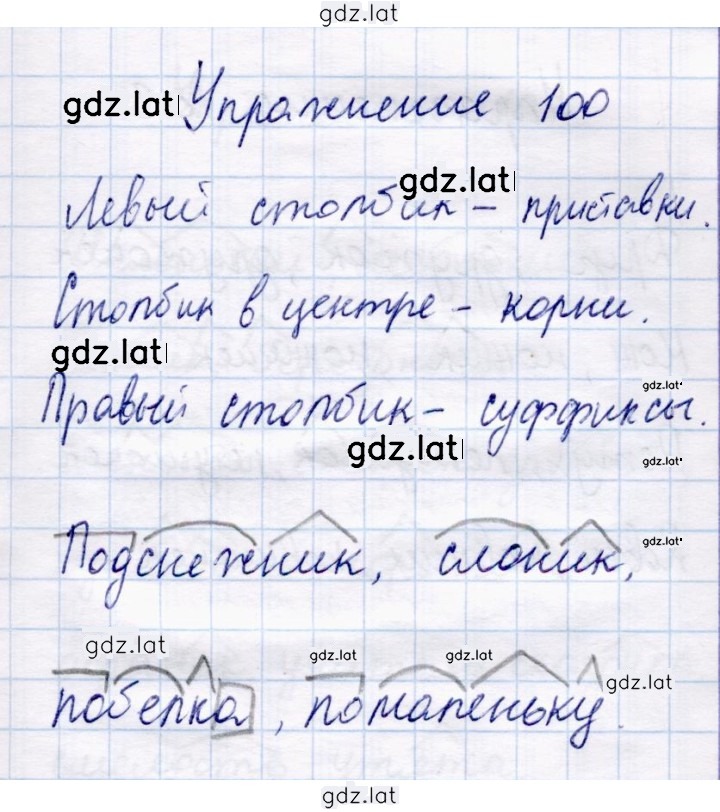 gdz.lat
gdz.lat Упражнение 100
gdz.lat
Левый столбик – приставки.
Столбик в центре – корни.
gdz.lat
Правый столбик – суффиксы.
gdz.lat
gdz.lat
gdz.lat
Подснежник, слоник,
gdz.lat
gdz.lat
gdz.lat
gdz.lat
gdz.lat
побелка, помаленьку.
gdz.lat